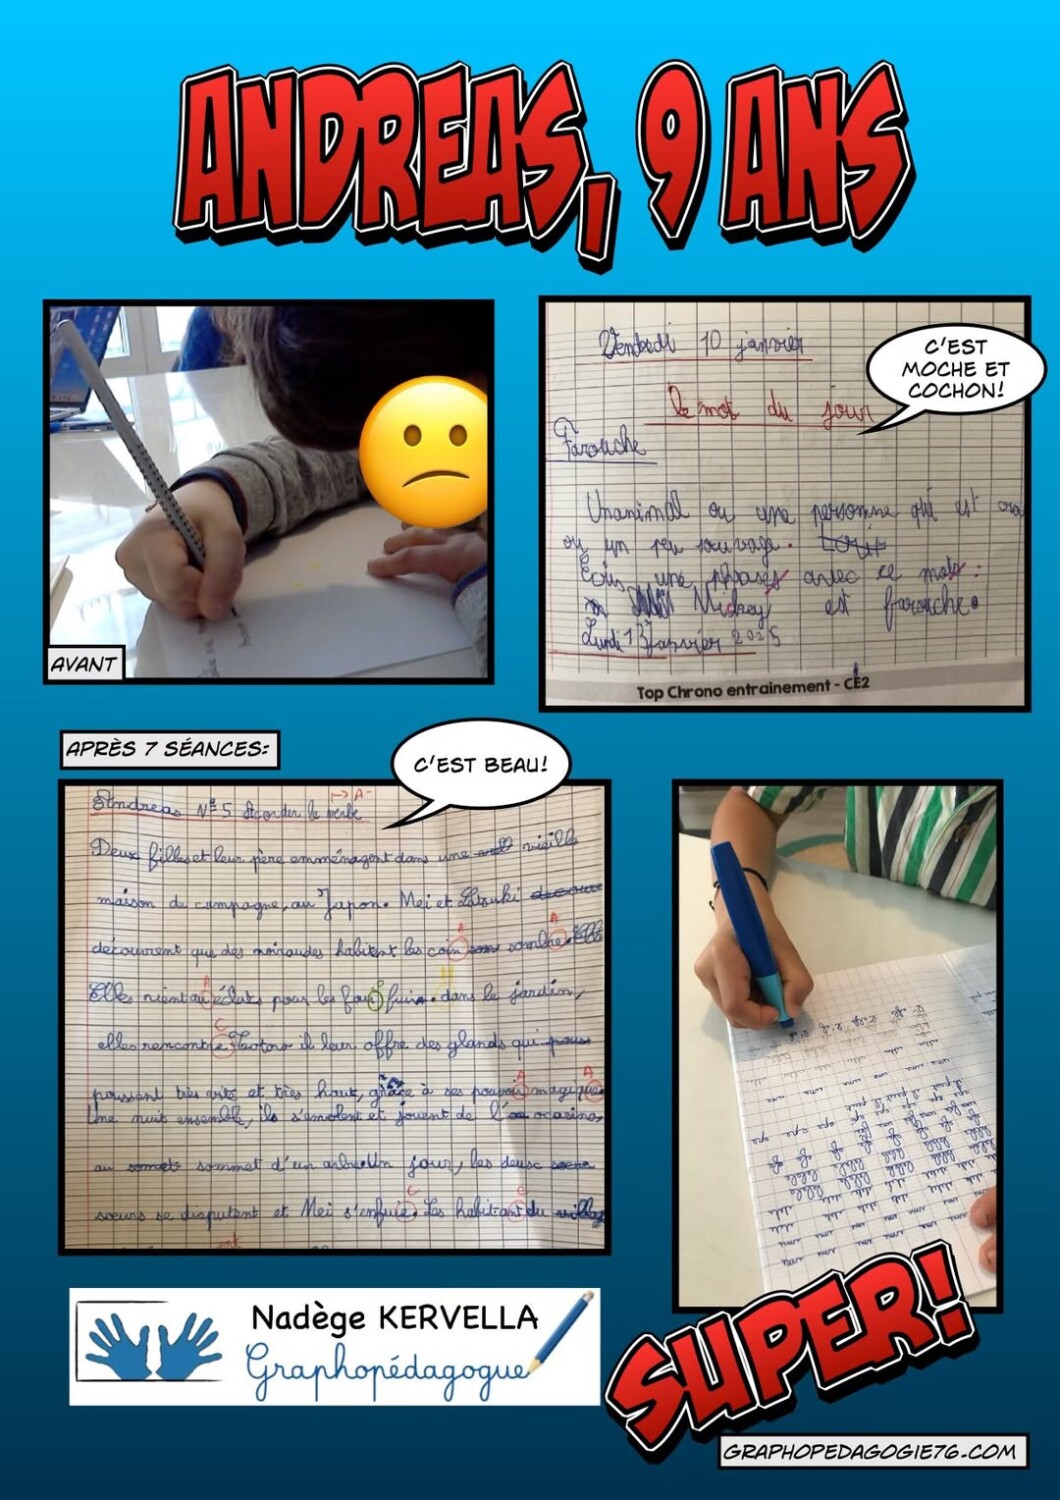 ANDREAS, 9 ANS
AVANT
Vendredi 10 janvier
C'EST
MOCHE ET
COCHON!
Le mot du jour
Farouche
Unanimal ou une personne qui est
ou un peu sauvage.
une phrases avec ce mots.
Mickey est farouche.
Lundi 13 Janvier 2025
Top Chrono entrainement - CE2
APRÈS 7 SÉANCES:
C'EST BEAU!
Andreas N° 5 Accorder le verbe
Deux filles et leur père emménagent dans une vieille
maison de campagne, au Japon. Mei et
découvrent que des noiraudes habitent les coin sombre.
Elles rient au éclats pour les dans le jardin,
elles rencontre Totoro il leur offre des glands qui
poussent très vite et très haut, grâce à ses pouvoir magique
Une nuit ensemble, ils s'envolent et jouent de l' ocarina,
au sommet d'un arbre. Un jour, les deux
sœurs se disputent et Mei s'enfuie. Les habitant du
Nadège KERVELLA
Graphopédagogue
SUPER!
GRAPHOPEDAGOGIE76.COM